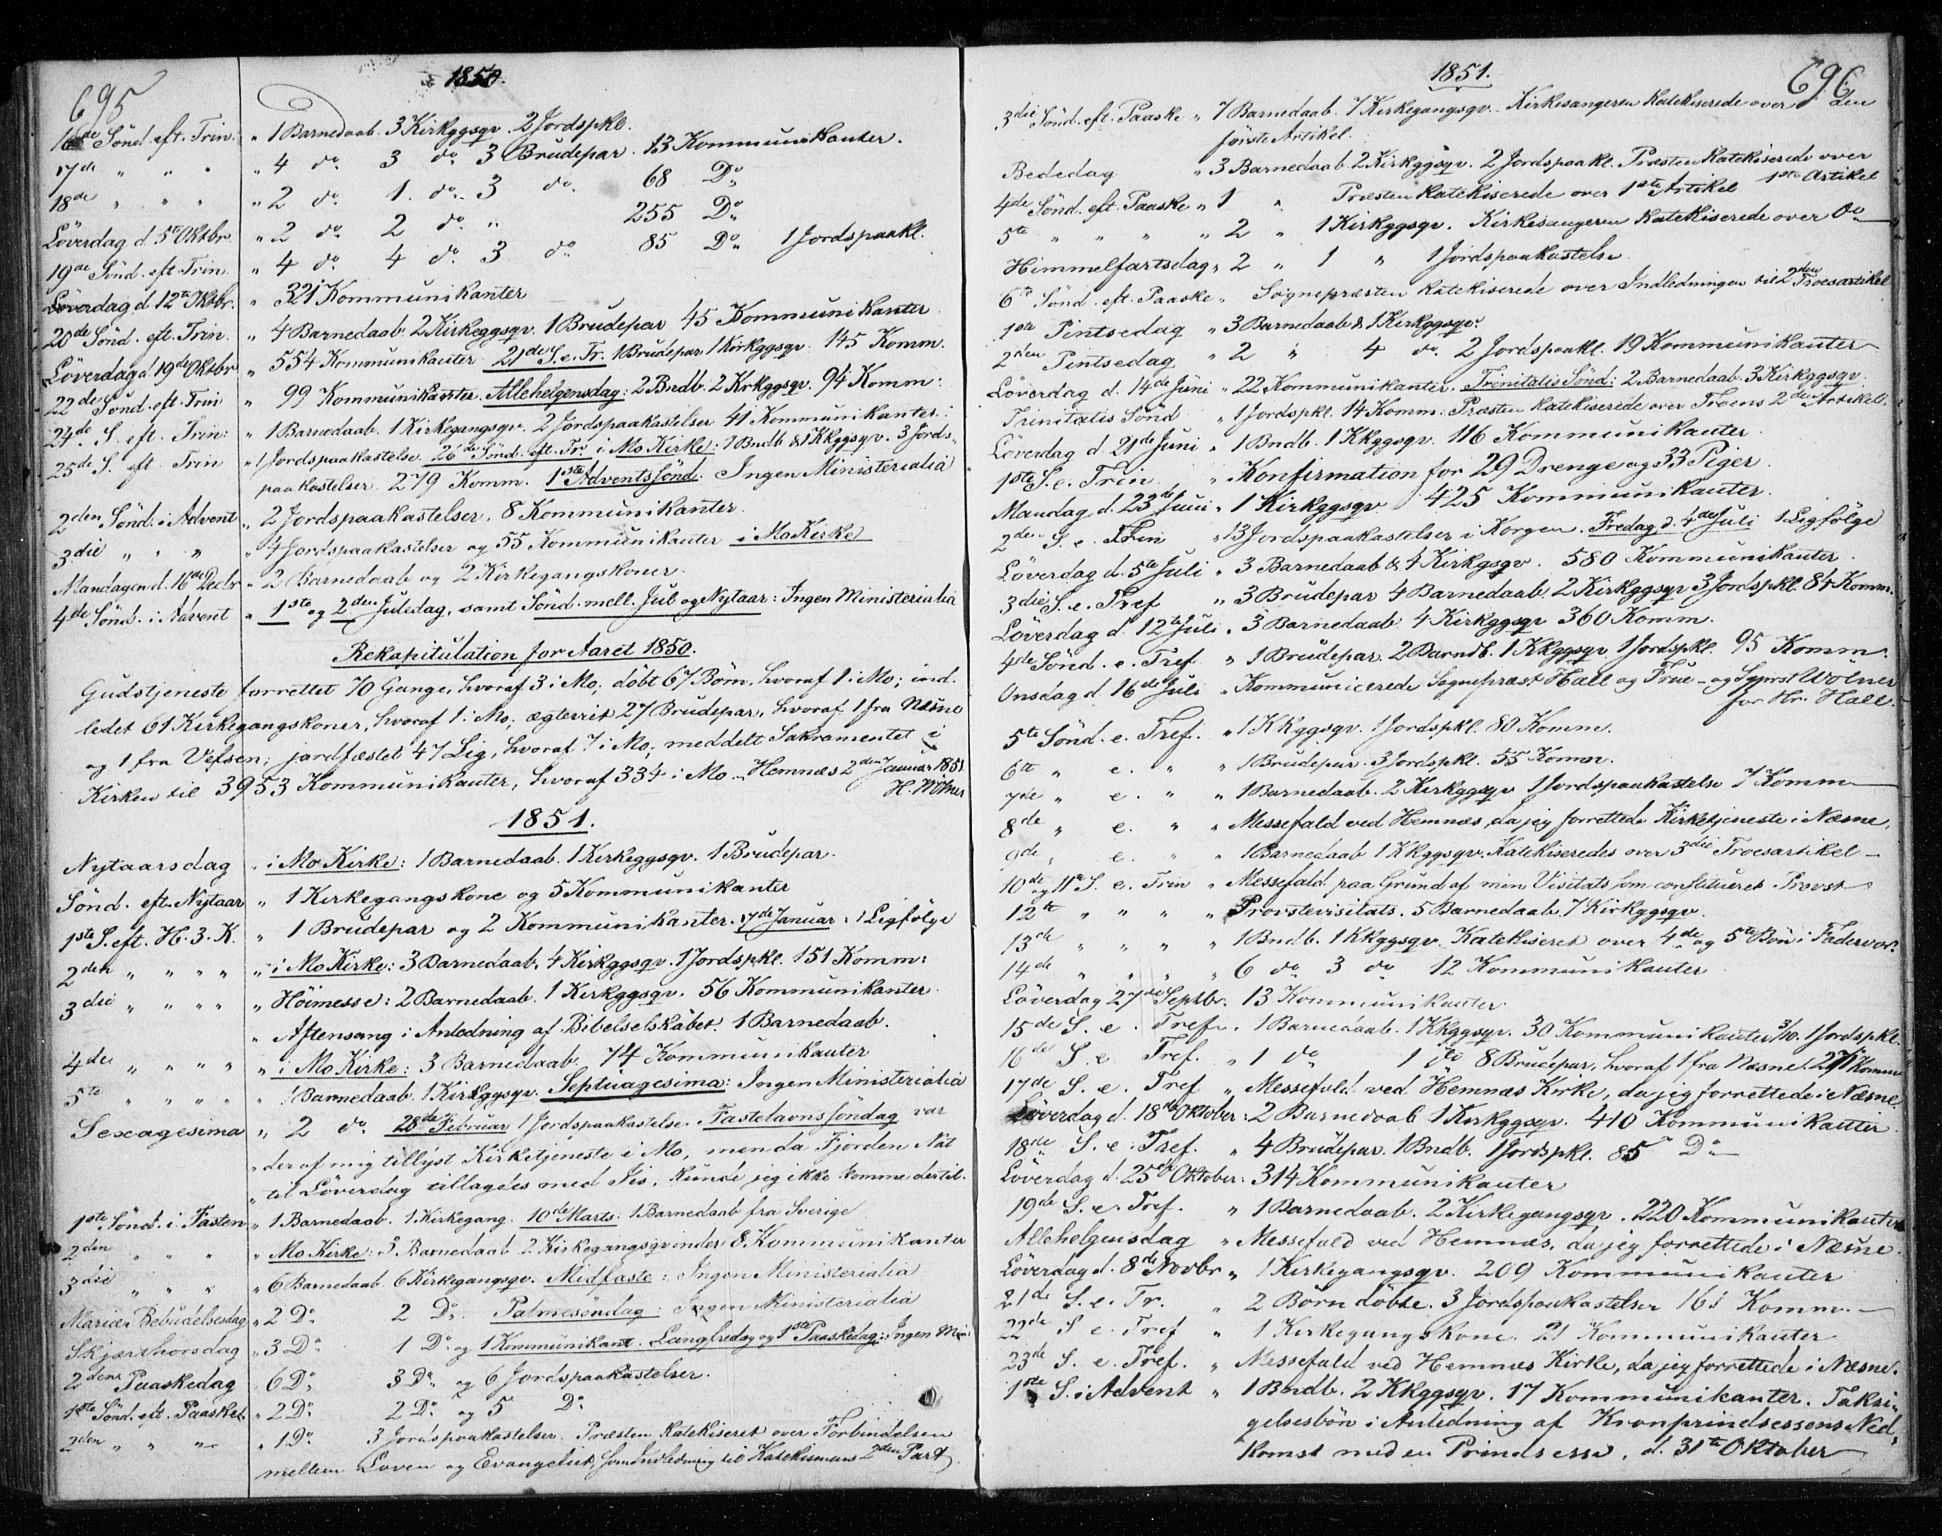 695
1850.
16de Sönd. eft. Trin. „ 1 Barnedaab. 3 Kirkggsqv. 2 Jordspkl.
17de „ „ „ „ 4 do 3 do 3 Brudepar. 13 Kommunikanter.
18de „ „ „ „ 2 do 1. do. 3 do. 68 Do
Löverdag d. 5te Oktbr. „ 2 do 2 do „ 255 Do
19de Sönd. eft. Trin. „ 4 do 4 do 3 do. 85 Do 1 Jordspaakl.
Löverdag d. 12te Oktbr. „ 321 Kommunikanter
20de Sönd. eft. Trin. „ 4 Barnedaab. 2 Kirkeggsqv. 1 Brudepar 45 Kommunikanter.
Löverdag d 19de Oktbr „ 554 Kommunikanter 21de S. e. Tr. 1 Brudepar 1 Kirkggsqv. 145 Komm.
22de Sönd. eft. Trin „ 99 Kommunikanter. Allehelgensdag: 2 Bndb. 2 Krkggsqv. 94 Komm:
24de S. eft. Trin: „ 1 Barnedaab. 1 Kirkegangsqv. 2 Jordspaakastelser 41 Kommunikanter.
25de S. eft Trin „ 1 Jordspaakastelse. 26de Sönd. eft. Tr. i Mo Kirke: 1 Bndb & 1 Kkggsqv. 3 Jords-
paakastelser. 279 Komm. 1ste Adventssönd: Ingen Ministerialia
2den Sönd. i Advent „ 2 Jordspaakastelser, 8 Kommunikanter.
3die „ „ „ „ 4 Jordspaakastelser og 55 Kommunikanter i Mo Kirke
Mandagen d. 16de Decbr „ 2 Barnedaab og 2 Kirkegangskoner.
4de Sönd. i Advent „ 1ste og 2den Juledag, samt Sönd. mell. Jul og Nytaar: Ingen Ministerialia
Rekapitulation for Aaret 1850.
Gudstjeneste forrettet 70 Gange, hvoraf 3 i Mo; döbt 67 Börn, hvoraf 1 i Mo; ind-
ledet 61 Kirkegangskoner, hvoraf 1 i Mo, ægteviet 27 Brudepar, hvoraf 1 fra Næsne
og 1 fra Vefsen; jordfæstet 47 Lig, hvoraf 7 i Mo; meddelt Sakramentet i
Kirken til 3953 Kommunikanter, hvoraf 334 i Mo. Hemnæs 2den Januar 1851.
H. Wölner
1851.
Nytaarsdag „ i Mo Kirke: 1 Barnedaab. 1 Kirkeggsqv. 1 Brudepar.
Sönd. eft. Nytaar „ 1 Kirkegangskone og 5 Kommunikanter
1ste S. eft. H. 3. K. „ 1 Brudepar og 2 Kommunikanter. 17de Januar: 1 Ligfölge
2den „ „ „ „ i Mo Kirke: 3 Barnedaab. 4 Kirkggsqv. 1 Jordspkl. 151 Komm:
3die „ „ „ „ Höimesse: 2 Barnedaab. 1 Kirkggsqv. 56 Kommunikanter.
„ Aftensang i Anledning af Bibelselskabet. 1 Barnedaab.
4de „ „ „ „ i Mo Kirke: 3 Barnedaab. 74 Kommunikanter
5te „ „ „ „ 1 Barnedaab. 1 Kirkggsqv. Septuagesima: Ingen Ministerialia
Sexagesima „ 2 do. 28de Februar 1 Jordspaakastelse. Fastelavnssöndag var
„ der af mig tillyst Kirketjeneste i Mo, men da Fjorden Nat
„ til Löverdag tillagdes med Iis, kunde jeg ikke komme dertil.
1ste Sönd. i Fasten „ 1 Barnedaab. 1 Kirkegang. 10de Marts: 1 Barnedaab fra Sverige
2den „ „ „ Mo Kirke: 3 Barnedaab 2 Kirkegangsqvinder 8 Kommunikanter
3die „ „ „ 6 Barnedaab. 6 Kirkegangsqv. Midfaste: Ingen Ministerialia
Mariæ Bebudelsesdag „ 2 Do 2 Do. Palmesöndag: Ingen Ministerialia
Skjærthorsdag „ 3 Do 1 Do og 1 Kommunikant. Langfredag og 1ste Paaskedag: Ingen Min:
2den Paaskedag „ 6 Do 3 Do og 6 Jordspaakastelser.
1ste Sönd. eft. Paaske „ 2 Do 2 Do og 5 Do
2den „ „ „ 1 Do 3 Jordspaakastelser. Præsten katekiseret over Forbindelsen
mellem Loven og Evangeliet, som Indledning til Katekismens 2den Part
1851.
696
3die Sönd. eft. Paaske „ 7 Barnedaab. 7 Kirkegangsqv. Kirkesangeren katekiserede over den
förste Artikel.
Bededag „ 3 Barnedaab. 2 Kirkggsqv. 2 Jordspaakl. Præsten katekiserede over
1ste Artikel
4de Sönd. eft. Paaske „ 1 „ Præsten katekiserede over 1ste Artikel
5te „ „ „ „ 2 „ 1 Kirkggsqv. Kirkesangeren katekiserede over Do
Himmelfartsdag „ 2 „ 1 „ 1 Jordspaakastelse
6te Sönd. eft. Paaske „ Sognepræsten katekiserede over Indledningen til 2den Troesartikel
1ste Pintsedag „ 3 Barnedaab & 1 Kirkggsqv.
2den Pintsedag „ 2 „ 4 do. 2 Jordspaakl. 19 Kommunikanter
Löverdag d. 14de Juni „ 22 Kommunikanter. Trinitatis Sönd: 2 Barnedaab. 3 Kirkggsqv.
Trinitatis Sönd „ 1 Jordspkl. 14 Komm. Præsten katekiserede over Troens 2den Artikel.
Löverdag d. 21de Juni „ 1 Bndb. 1 Kkggsqv. 116 Kommunikanter
1ste S. e. Trin „ Konfirmation for 29 Drenge og 33 Piger.
Mandag d. 23de Juni „ 1 Kirkggsqv 425 Kommunikanter.
2den S. e. Trin „ 13 Jordspaakastelser i Korgen. Fredag d. 4de Juli 1 Ligfölge
Löverdag d. 5te Juli „ 3 Barnedaab & 4 Kirkgsqv. 580 Kommunikanter.
3die S. e. Tref „ 3 Brudepar 4 Barnedaab. 2 Kirkggsqv 3 Jordspkl. 84 Komm.
Löverdag d. 12te Juli „ 3 Barnedaab 4 Kirkggsqv 360 Komm.
4de Sönd. e. Tref „ 1 Brudepar. 2 Barndb. 1 Kkggsqv 1 Jordspkl. 95 Komm.
Onsdag d. 16de Juli „ Kommunicerede Sognepræst Hall og Frue - og Wölner
for Hr. Hall.
5te Sönd. e. Tref. „ 1 Kkggsqv. 1 Jordspkl. 80 Komm.
6te „ e. „ „ 1 Brudepar. 3 Jordspkl. 55 Komm.
7de „ e. „ „ 1 Barnedaab. 2 Kirkggsqv 1 Jordspaakastelse 7 Komm
8de „ e. „ „ Messefald ved Hemnæs, da jeg forrettede Kirketjeneste i Næsne.
9de „ e. „ „ 1 Barnedaab 1 Kkggsqv. Katekiseredes over 3die Troesartikel -
10de og 11te S. e. Trin „ Messefald paa Grund af min Visitats som constitueret Provst
12te „ „ „ „ Provstevisitats. 5 Barnedaab. 7 Kirkggsqv.
13de „ „ „ „ 1 Bndb. 1 Kkggsqv. Katekiseret over 4de og 5te Bön i Fadervor.
14de „ „ „ „ 6 do 3 do 12 Kommunikanter
Löverdag 27de Septbr. 13 Kommunikanter.
15de S. e. Tref. „ 1 Barnedaab. 1 Kkggsqv. 30 Kommunikanter 3/10. 1 Jordspkl.
16de S. e. Tref. „ 1 do 1 do 8 Brudepar, hvoraf 1 fra Næsne. 271 Komm
17de S. e. Tref „ Messefald ved Hemnæs Kirke, da jeg forrettede i Næsne.
Löverdag d. 18de Oktober: 2 Barnedaab 1 Kirkggsqv. 410 Kommunikanter
18de S. e. Tref. „ 4 Brudepar. 1 Bndb. 1 Jordspkl. 85 Do
Löverdag d. 25de Oktober: 314 Kommunikanter
19de S. e. Tref. „ 1 Barnedaab. 2 Kirkegangsqv. 220 Kommunikanter
Allehelgensdag „ Messefald ved Hemnæs, da jeg forrettede i Næsne.
Löverdag d. 8de Novbr „ 1 Kirkegangsqv. 209 Kommunikanter
21de S. e. Tr. „ 2 Börn döbte. 3 Jordspaakastelser 161 Komm. -
22de S. e. Tref „ 1 Kirkegangskone. 21 Kommunikanter
23de S. e. Tref. „ Messefald ved Hemnæs Kirke, da jeg forrettede i Næsne.
1ste S. i Advent „ 1 Bndb. 2 Kkggsqv. 17 Kommunikanter. Taksi-
gelsesbön i Anledning af Kronprindsessens Ned-
komst med en Prindsesse, d. 31te Oktober